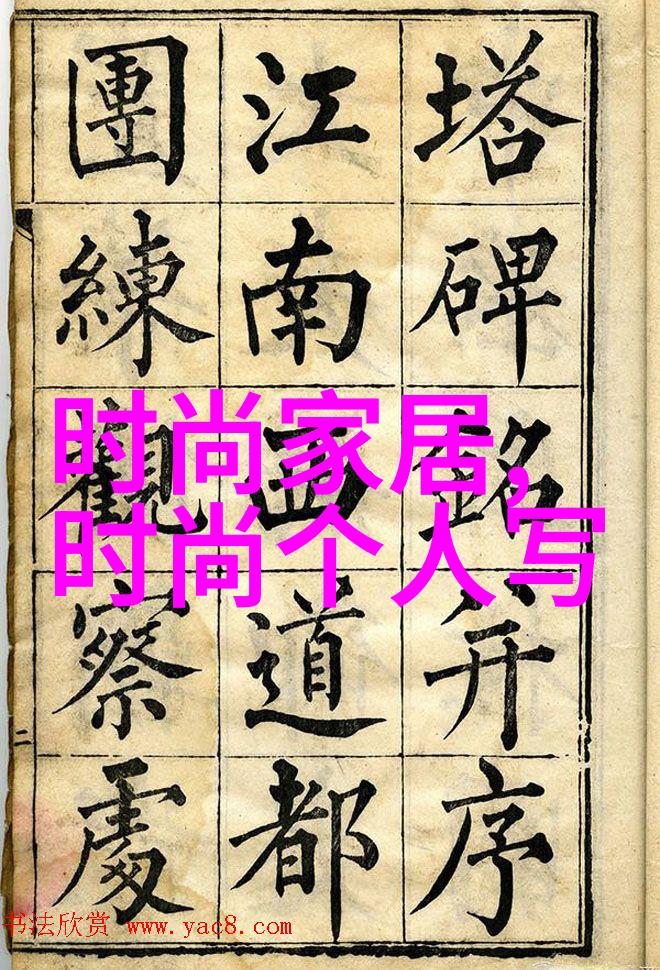 塔碑銘并序
江南西道都
團練觀察處
时尚家居,
时尚个人写
二
书法欣赏 www.yac8.com